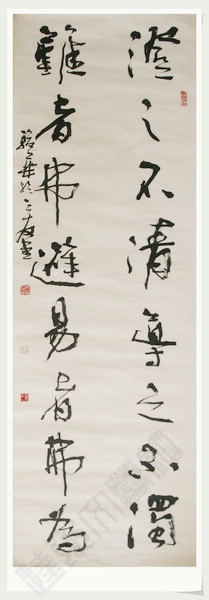 澄之不清導之不濁
難者弗避易者弗為